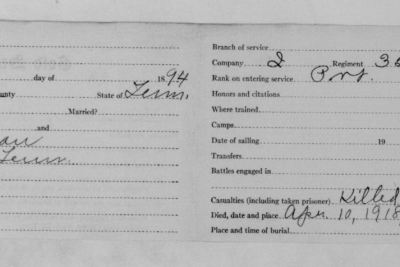 day of 1894
unty State of Tenn.
Married?
and
Tenn.
Branch of service
Company Regiment 3
Rank on entering service Pvt.
Honors and citations
Where trained
Camps
Date of sailing 19
Transfers
Battles engaged in
Casualties (including taken prisoner) Killed
Died, date and place Apr. 10, 1918
Place and time of burial